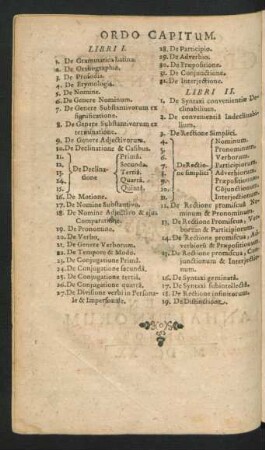 ORDO CAPITUM.
LIBRI I.
1. De Grammatica in
2. De Orthographia.
3. De Prosodia.
4. De Etymologia.
5. De Nomine.
6. De Genere Nominum.
7. De Genere Substantivorum ex
significatione.
8. De Genere Substantivorum ex
terminatione.
9. De Genere Adjectivorum.
10. De Declinatione & Casibus.
11.
12.
13.
14.
15.
De Declinatione
Primâ.
Secunda.
Tertiâ.
Quartâ.
Quintâ.
16. De Motione.
17. De Nomine Substantivo.
18. De Nomine Adjectivo & ejus
Comparatione.
19. De Pronomine.
20. De Verbo.
21. De Genere Verborum.
22. De Tempore & Modo.
23. De Conjugatione Primâ.
24. De Conjugatione secundâ.
25. De Conjugatione tertiâ.
26. De Conjugatione quartâ.
27. De Divisione verbi in Persona-
le & Impersonale.
28. De Participio.
29. De Adverbio.
30. De Præpositione.
31. De Conjunctione.
32. De Interjectione.
LIBRI II.
1. De Syntaxi convenientiæ De-
clinabilium.
2. De convenientiâ Indeclinabi-
lium.
3. De Rectione Simplici.
4.
5.
6.
7.
8.
9.
10.
11.
De Rectio-
ne simplici
Nominum.
Pronominum.
Verborum.
Participiorum.
Adverbiorum.
Præpositionum
Cõjunctionum.
Interjectionũ.
12. De Rectione promiscuâ No-
minum & Pronominum.
13. De Rectione Promiscua, Ver-
borum & Participiorum.
14. De Rectione promiscua, Ad-
verbiorũ & Præpositionum
15. De Rectione promiscua, Con-
junctionum & Interjectio-
num.
16. De Syntaxi geminatâ.
17. De Syntaxi subintellectâ.
18. De Rectione infinitarum.
19. De Distinctione.